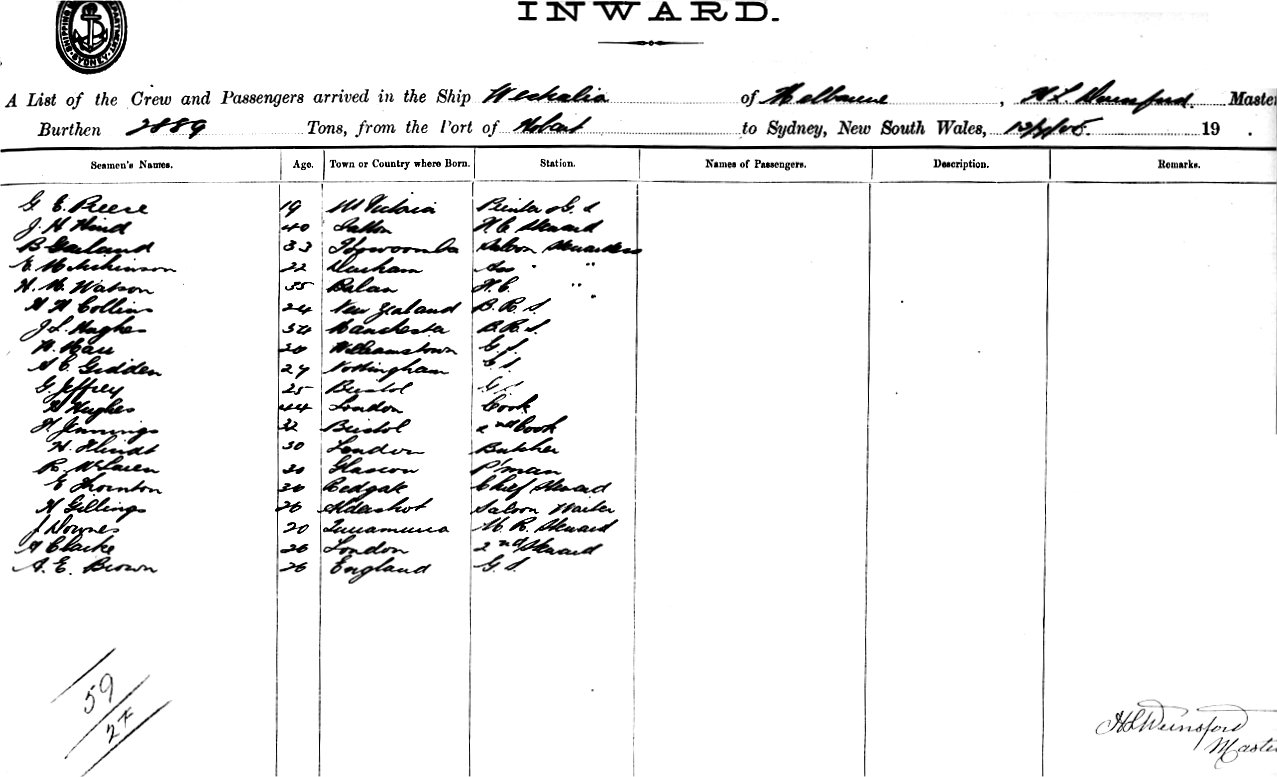 SHIPPING DEPARTMENT SYDNEY
INWARD.
A List of the Crew and Passengers arrived in the Ship Westralia of Melbourne, H L Master
Burthen 2889 Tons, from the Port of Hobart to Sydney, New South Wales, 19 .
Seamen's Names. Age. Town or Country where Born. Station. Names of Passengers. Description. Remarks.
G. E. Reese 19 Victoria
J. H Hind 40 H.C Steward
B Garland 33 Toowoomba Saloon Stewardess
E. 22 Durham Ass " "
H. M. Watson 35 H.C. " "
H H Collins 24 New Zealand B. R. S.
J L Hughes 34 Manchester B.R.S.
20 Williamstown G.S.
A E Gedden 27 Nottingham G S
G. Jeffrey 25 Bristol G S
H Hughes 44 London Cook
H. Jennings 32 Bristol 2nd Cook
H. 30 London Butcher
R. McLaren 30 Glascow P'man
E Thornton 30 Redgate Chief Steward
H Gillings 26 Aldershot Saloon Waiter
J Downes 20 M. R. Steward
A Clarke 26 London 2nd Steward
A. E. Brown 26 England G. S.
59
27
Master